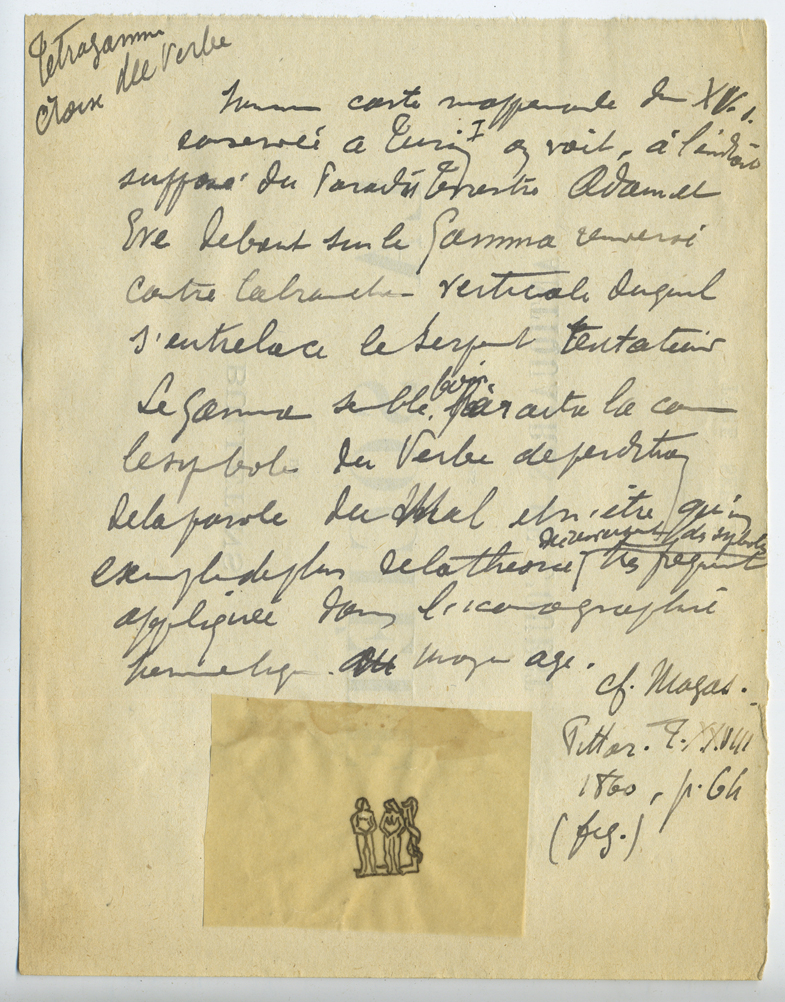 Tétragamma
Croix du Verbe
Sur une carte mappemonde du XVe s.
conservée à Turin I on voit, à l'endroit
supposé du Paradis terrestre Adam et
Eve debout sur le Gamma renversé
contre la branche verticale duquel
s'entrelace le serpent tentateur
Le Gamma semble bien,
le symbole du Verbe de perdition
de la parole du Mal et n'être qu'un
des renversements des symboles
exemple de plus de la théorie très fréquent
appliquée dans l'iconographie
hermétique au moyen age.
cf. Magas.
Pittor. T. XXVIII
1860, p. 64
(fig.)